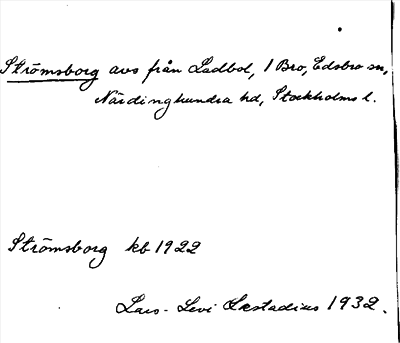 Strömsborg avs från Ladbol, 1 Bro, Edsbro sn,
Närdinghundra hd, Stockholms l.
Strömsborg kb 1922
Lars-Levi Læstadius 1932.